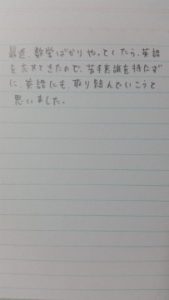 最近、数学ばかりやってたら、英語
を忘れてきたので、苦手意識を持たず
に、英語にも、取り組んでいこうと
思いました。